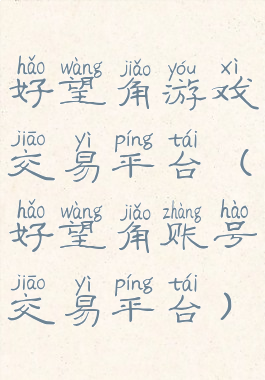 hǎo wàng jiǎo yóu xì
好望角游戏
jiāo yì píng tái
交易平台（
hǎo wàng jiǎo zhàng hào
好望角账号
jiāo yì píng tái
交易平台）